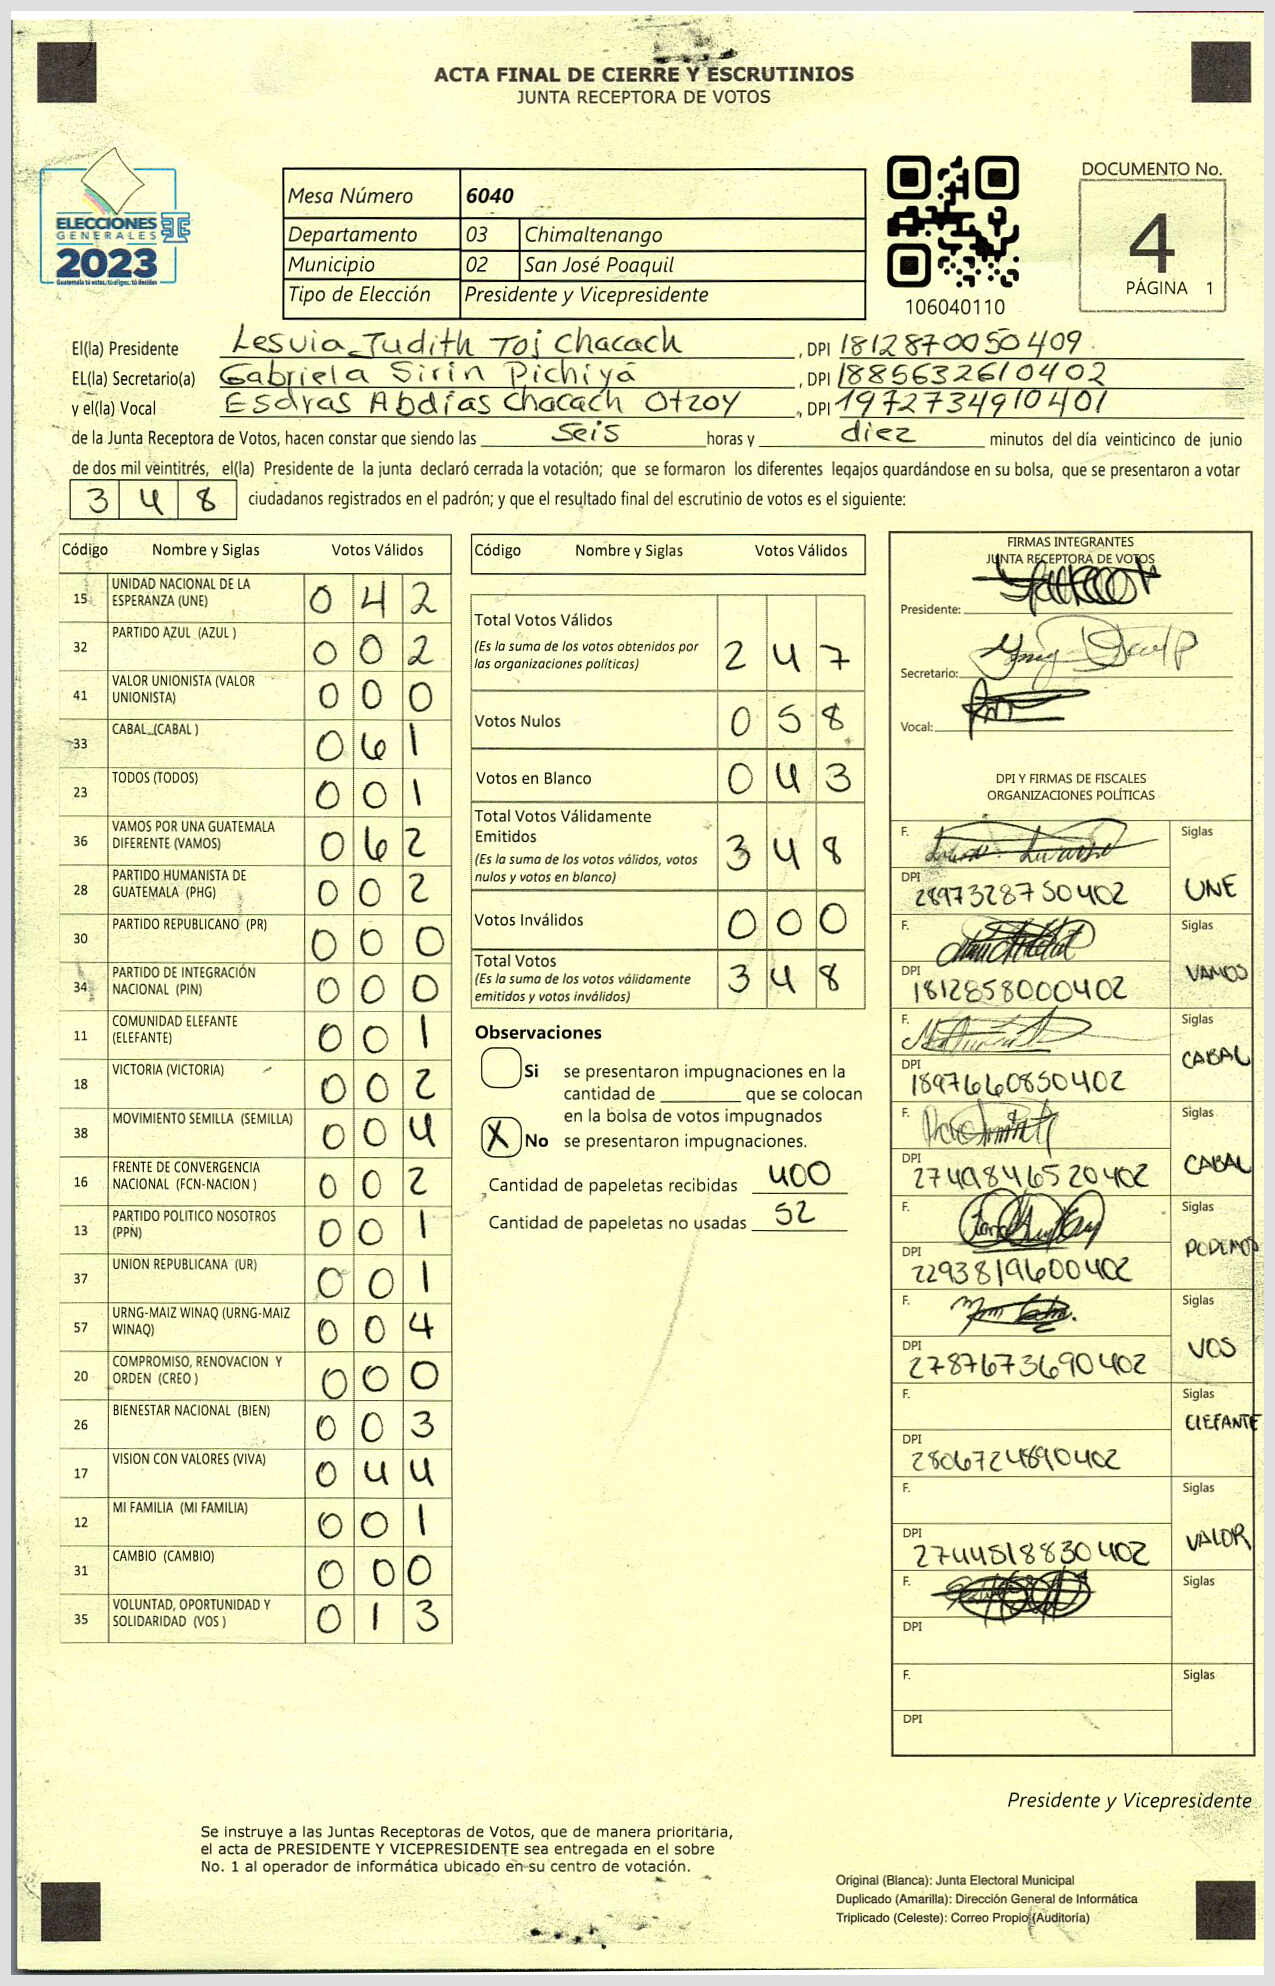 ACTA FINAL DE CIERRE Y ESCRUTINIOS
JUNTA RECEPTORA DE VOTOS
ELECCIONES
GENERALES
2023
Guatemala tú votas, tú eliges, tú decides
Mesa Número 6040
Departamento 03 Chimaltenango
Municipio 02 San José Poaquil
Tipo de Elección Presidente y Vicepresidente
106040110
DOCUMENTO No.
4
PÁGINA 1
El(la) Presidente Lesvia Judith Toj Chacach, DPI 1812870050409
EL(la) Secretario(a) Gabriela Sirin Pichiyá, DPI 1885632610402
y el(la) Vocal Esdras Abdías Chacach Otzoy, DPI 1972734910401
de la Junta Receptora de Votos, hacen constar que siendo las seis horas y diez minutos del día veinticinco de junio
de dos mil veintitrés, el(la) Presidente de la junta declaró cerrada la votación; que se formaron los diferentes legajos guardándose en su bolsa, que se presentaron a votar
348 ciudadanos registrados en el padrón; y que el resultado final del escrutinio de votos es el siguiente:
Código Nombre y Siglas Votos Válidos
15 UNIDAD NACIONAL DE LA ESPERANZA (UNE) 042
32 PARTIDO AZUL (AZUL ) 002
41 VALOR UNIONISTA (VALOR UNIONISTA) 000
33 CABAL (CABAL ) 061
23 TODOS (TODOS) 001
36 VAMOS POR UNA GUATEMALA DIFERENTE (VAMOS) 062
28 PARTIDO HUMANISTA DE GUATEMALA (PHG) 002
30 PARTIDO REPUBLICANO (PR) 000
34 PARTIDO DE INTEGRACIÓN NACIONAL (PIN) 000
11 COMUNIDAD ELEFANTE (ELEFANTE) 001
18 VICTORIA (VICTORIA) 002
38 MOVIMIENTO SEMILLA (SEMILLA) 004
16 FRENTE DE CONVERGENCIA NACIONAL (FCN-NACION ) 002
13 PARTIDO POLITICO NOSOTROS (PPN) 001
37 UNION REPUBLICANA (UR) 001
57 URNG-MAIZ WINAQ (URNG-MAIZ WINAQ) 004
20 COMPROMISO, RENOVACION Y ORDEN (CREO ) 000
26 BIENESTAR NACIONAL (BIEN) 003
17 VISION CON VALORES (VIVA) 044
12 MI FAMILIA (MI FAMILIA) 001
31 CAMBIO (CAMBIO) 000
35 VOLUNTAD, OPORTUNIDAD Y SOLIDARIDAD (VOS ) 013
Código Nombre y Siglas Votos Válidos
Total Votos Válidos 247
(Es la suma de los votos obtenidos por
las organizaciones políticas)
Votos Nulos 058
Votos en Blanco 043
Total Votos Válidamente
Emitidos 348
(Es la suma de los votos válidos, votos
nulos y votos en blanco)
Votos Inválidos 000
Total Votos 348
(Es la suma de los votos válidamente
emitidos y votos inválidos)
Observaciones
Si se presentaron impugnaciones en la
cantidad de ________ que se colocan
en la bolsa de votos impugnados
X No se presentaron impugnaciones.
Cantidad de papeletas recibidas 400
Cantidad de papeletas no usadas 52
FIRMAS INTEGRANTES
JUNTA RECEPTORA DE VOTOS
Presidente:
Secretario:
Vocal:
DPI Y FIRMAS DE FISCALES
ORGANIZACIONES POLÍTICAS
F. Siglas
DPI 2897328750402 UNE
F. Siglas
DPI 1812858000402 VAMOS
F. Siglas
DPI 1897660850402 CABAL
F. Siglas
DPI 2749846520402 CABAL
F. Siglas
DPI 2293819600402 PODEMOS
F. Siglas
DPI 2787673690402 VOS
F. Siglas
DPI 2806724890402 ELEFANTE
F. Siglas
DPI 2744518830402 VALOR
F. Siglas
DPI
F. Siglas
DPI
Presidente y Vicepresidente
Se instruye a las Juntas Receptoras de Votos, que de manera prioritaria,
el acta de PRESIDENTE Y VICEPRESIDENTE sea entregada en el sobre
No. 1 al operador de informática ubicado en su centro de votación.
Original (Blanca): Junta Electoral Municipal
Duplicado (Amarilla): Dirección General de Informática
Triplicado (Celeste): Correo Propio (Auditoría)